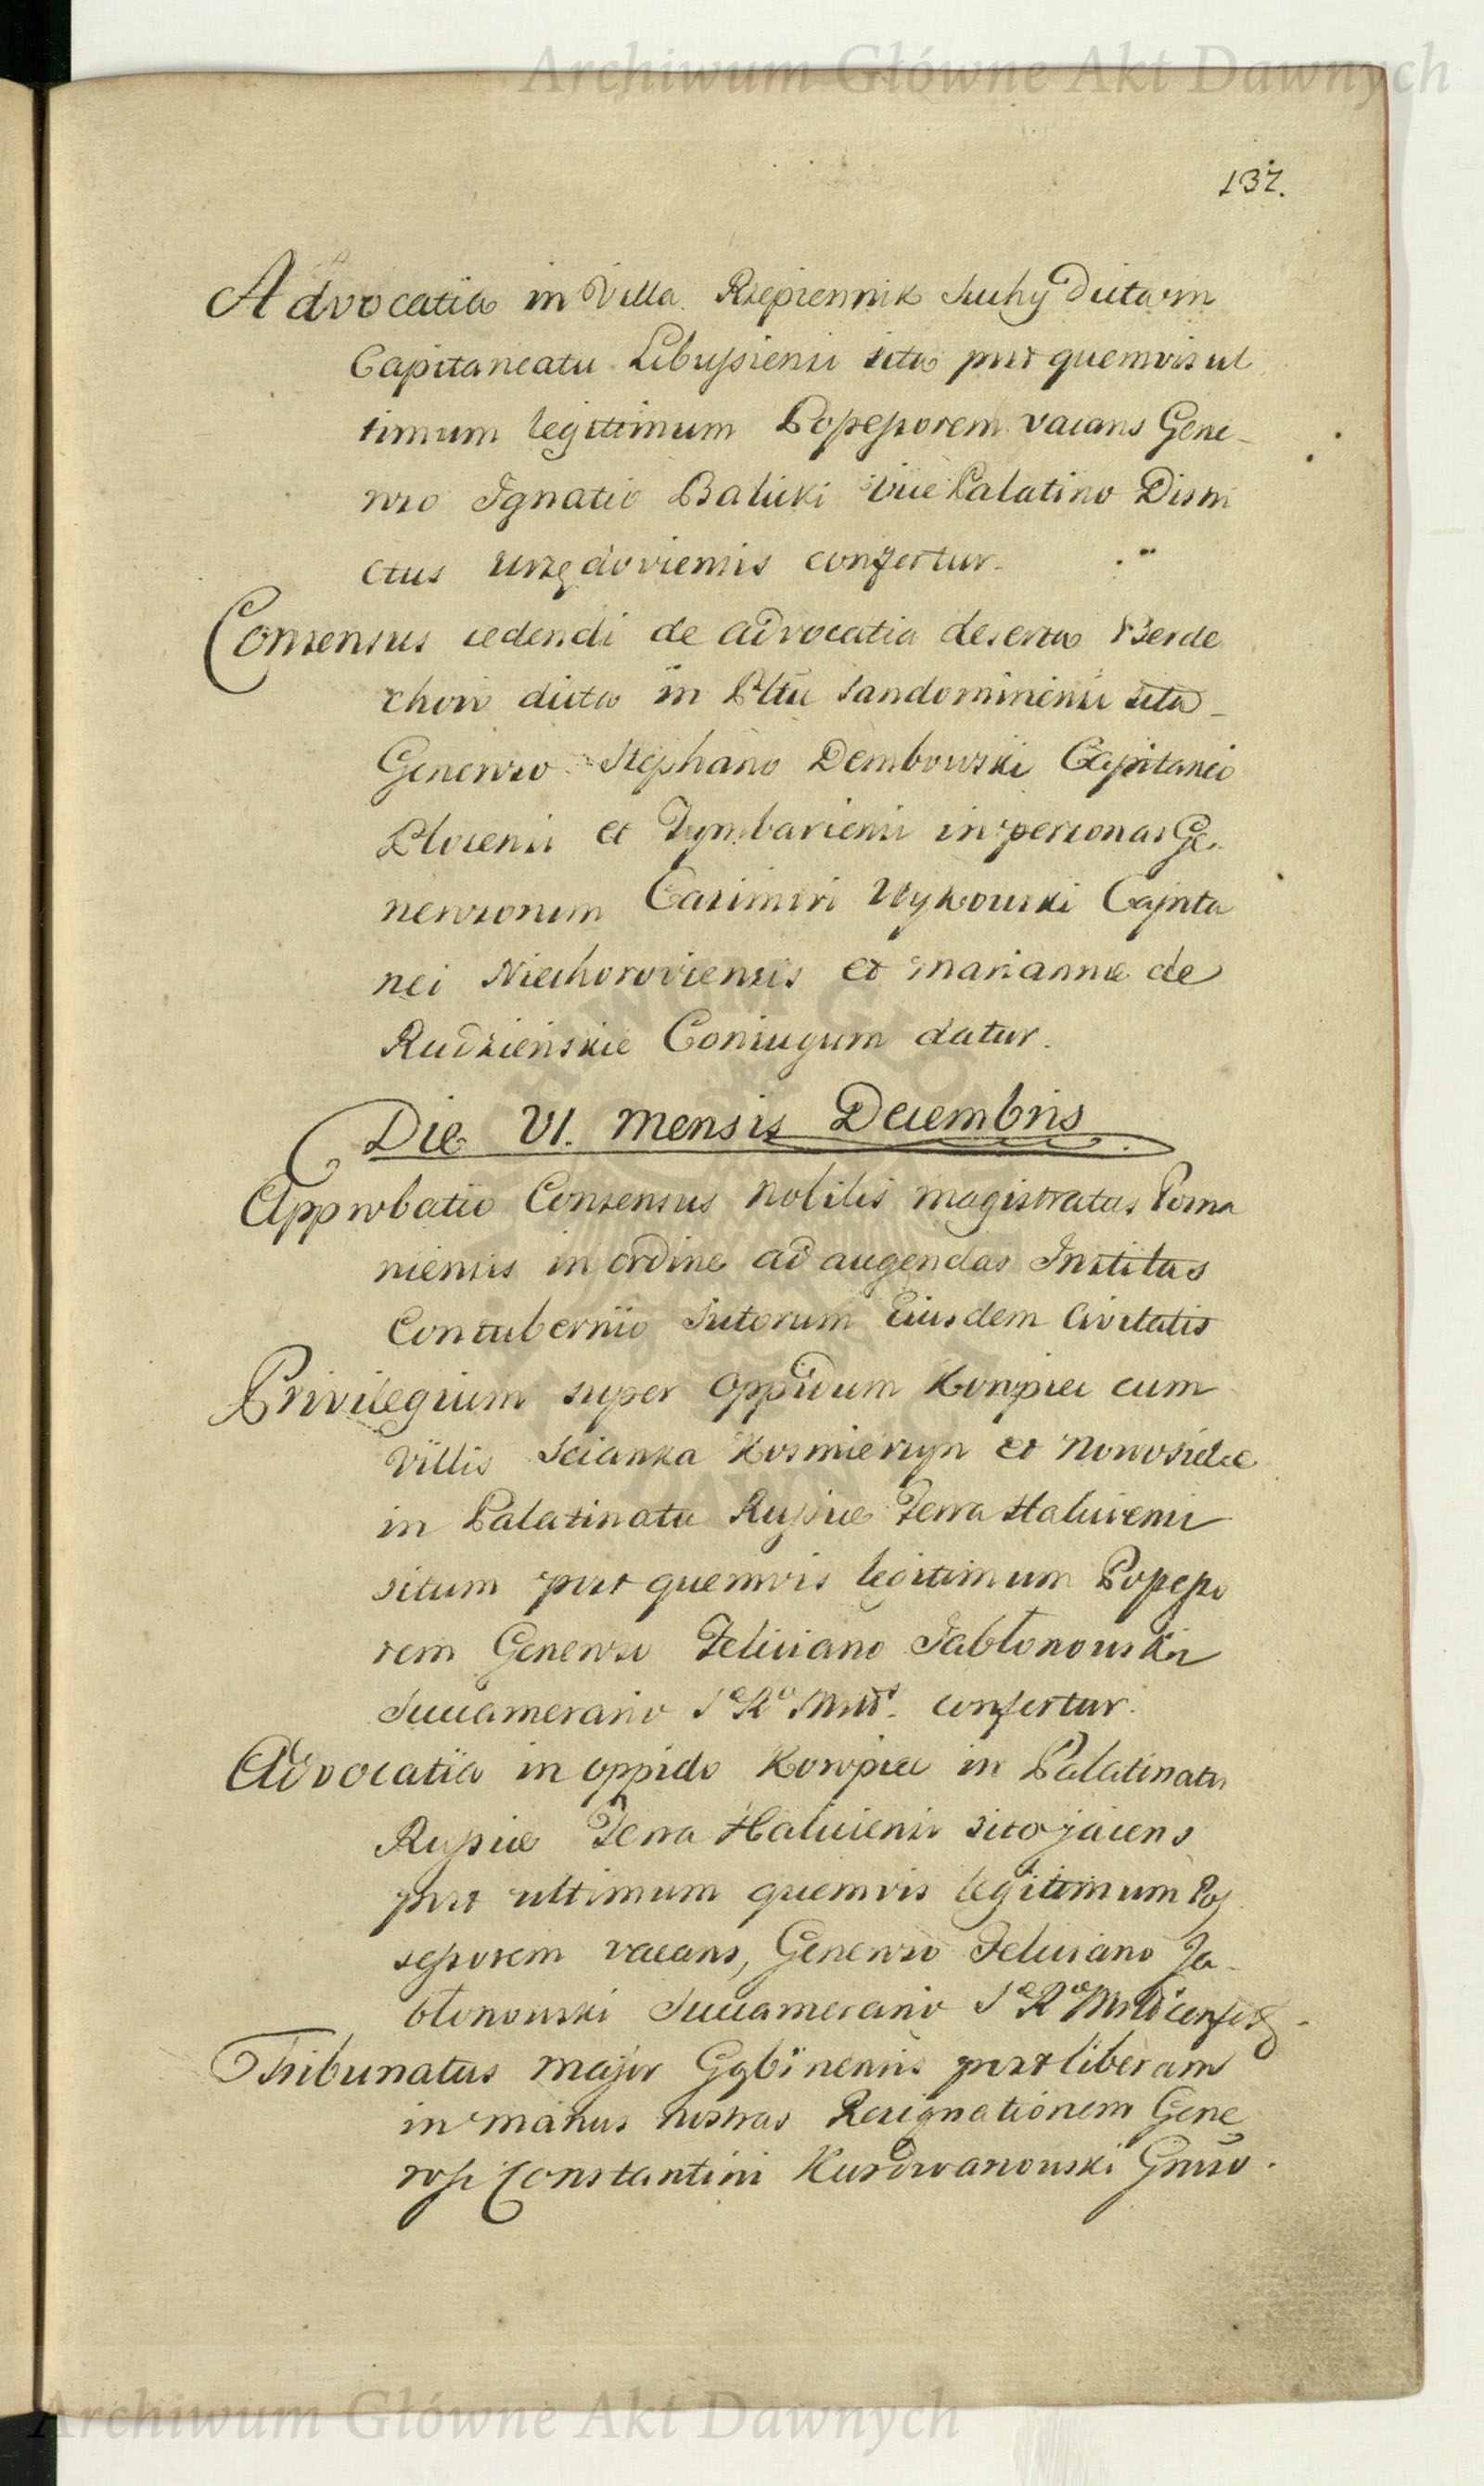 Archiwum Główne Akt Dawnych
137.
Advocatia in Villa Rzepiennik Suchy Dicta in
Capitaneatu Libussiensi sita post quemvis ul
timum legittimum Possessorem vacans Gene-
roso Ignatio Balicki Vice Palatino Distri
ctus Urzędoviensis confertur.
Consensus cedendi de advocatia deserta Berde
chow dicta in Pltu Sandomiriensi sita
Generoso Stephano Dembowski Capitaneo
Plocensi et Tymbariensi in personas Ge.
nerosorum Casimiri Wykowski Capita
nei Niechoroviensis et Mariannæ de
Rudzieńskie Coniugum datur.
Die VI. Mensis Decembris
Approbatio Consensus Nobilis Magistratus Posna
niensis in ordine ad augendas Institas
Contubernio Sutorum Eiusdem Civitatis
Privilegium super Oppidum Koropiec cum
Villis Scianka Kosmierzyn et Nowosiołce
in Palatinatu Russiæ Terra Haliciensi
situm post quemvis legitimum Possesso
rem Generoso Feliciano Jabłonowski
Succamerario S^æ R^æ Mttis. confertur.
Advocatia in oppido Koropiec in Palatinatu
Russiæ Terra Haliciensi sito jacens
post ultimum quemvis legitimum Pos
sessorem vacans, Generoso Feliciano Ja-
błonowski Succamerario S^æ R^æ Mttis confert.
Tribunatus Major Gąbinensis post liberam
in manus nostras Resignationem Gene
rosi Constantini Kurdwanowski Gnroso.
Archiwum Główne Akt Dawnych